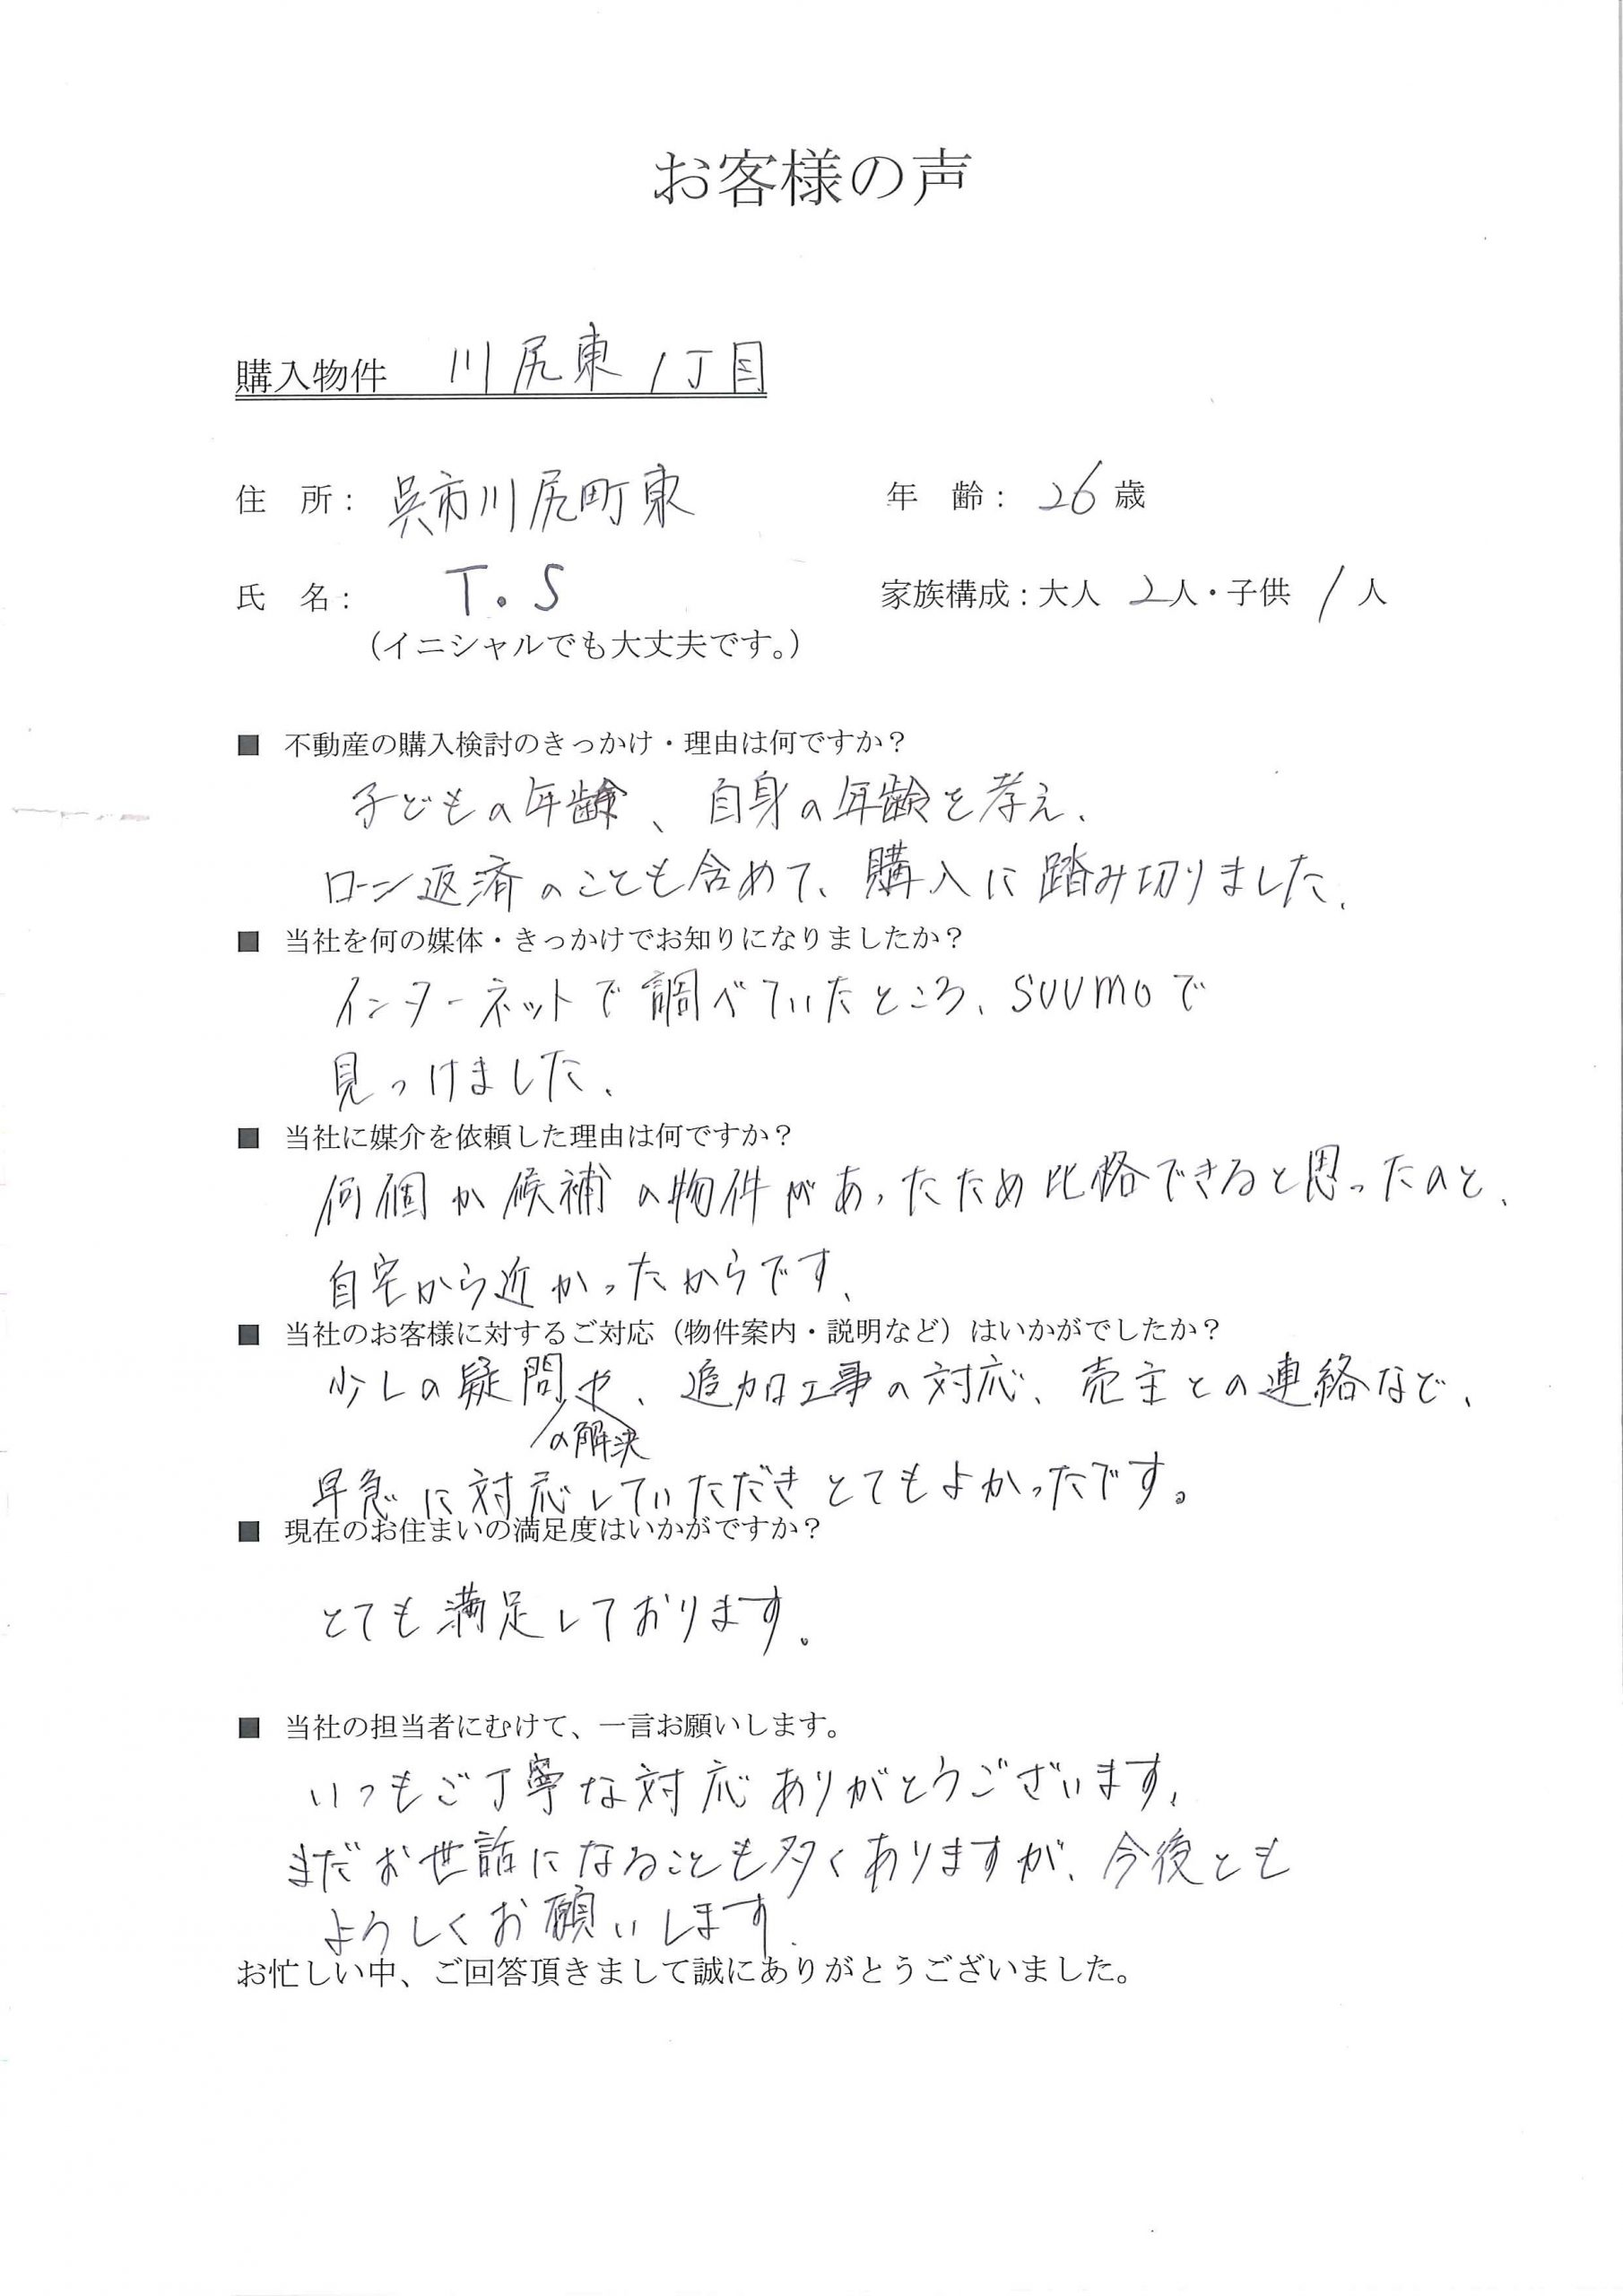 お客様の声
購入物件 川尻東1丁目
住 所: 呉市川尻町東 年 齢: 26 歳
氏 名: T.S 家族構成:大人 2人・子供 1人
(イニシャルでも大丈夫です。)
■ 不動産の購入検討のきっかけ・理由は何ですか?
子どもの年齢、自身の年齢を考え、
ローン返済のことも含めて、購入に踏み切りました、
■ 当社を何の媒体・きっかけでお知りになりましたか?
インターネットで調べていたところ、SUUMOで
見つけました、
■ 当社に媒介を依頼した理由は何ですか?
何個か候補の物件があったため比格できると思ったのと、
自宅から近かったからです、
■ 当社のお客様に対するご対応(物件案内・説明など)はいかがでしたか?
少しの疑問や、追加工事の対応、売主との連絡など、
の解決
早急に対応していただきとてもよかったです。
■ 現在のお住まいの満足度はいかがですか?
とても満足しております。
■ 当社の担当者にむけて、一言お願いします。
いつもご丁寧な対応ありがとうございます、
まだお世話になることも多くありますが、今後とも
よろしくお願いします、
お忙しい中、ご回答頂きまして誠にありがとうございました。